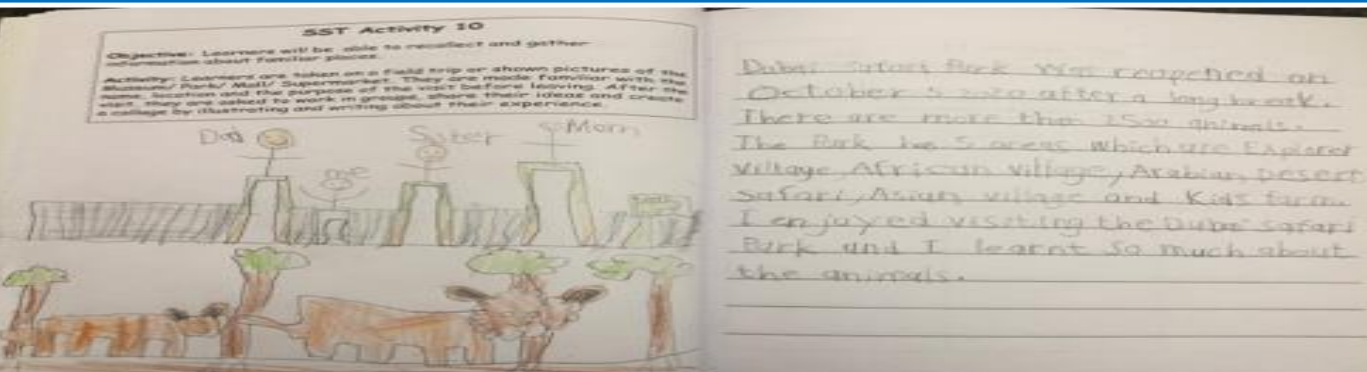 SST Activity 10
Objective: Learners will be able to recollect and gather
information about familiar places.
Activity: Learners are taken on a field trip or shown pictures of the
Museum/ Park/ Mall/ Supermarket. They are made familiar with the
name, location and the purpose of the visit before leaving. After the
visit, they are asked to work in groups, share their ideas and create
a collage by illustrating and writing about their experience.
Dad
me
Sister
Mom
Dubai Safari Park was reopened on
October 5 2020 after a long break.
There are more than 2500 animals.
The Park has 5 areas which are Explorer
Village, African Village, Arabian Desert
Safari, Asian village and Kids farm
I enjoyed visiting the Dubai safari
Park and I learnt so much about
the animals.